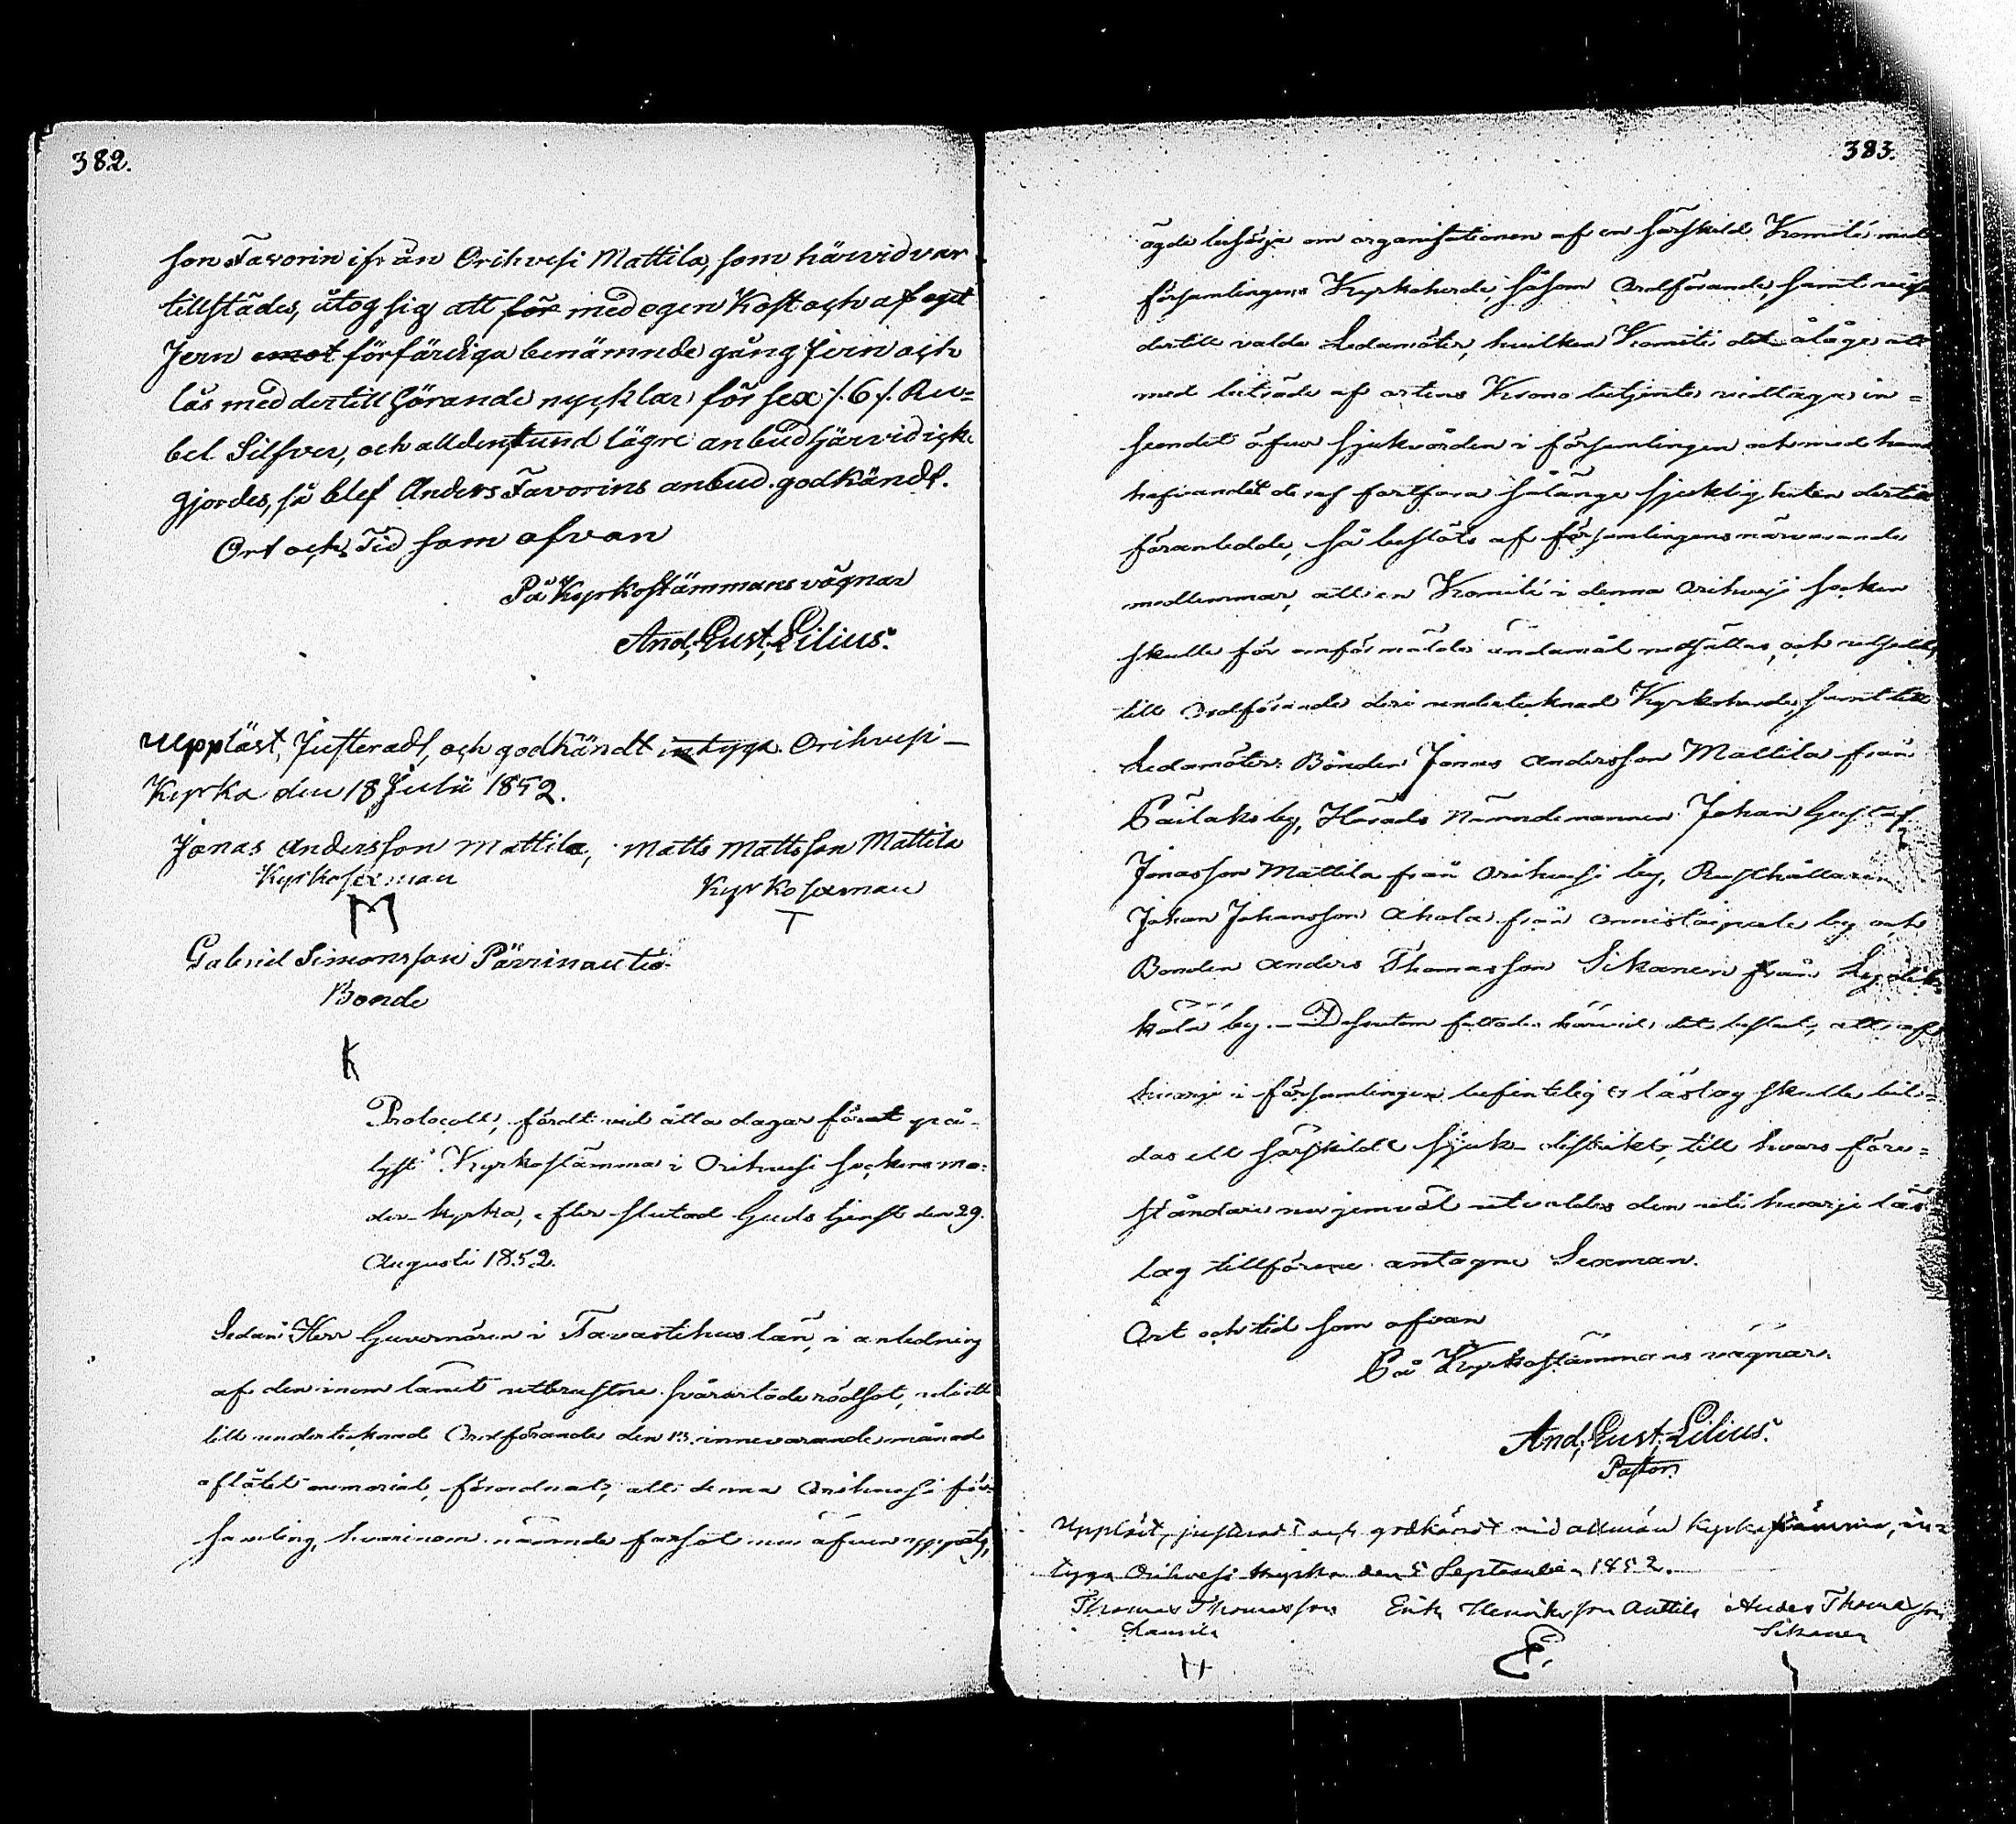 382.
son Favorin ifrån Orihvesi Mattila, som härvid var
tillstädes, åtog sig att för med egen Kost och af eget
Jern emot förfärdiga benämnde gång jern och
lås med dertill hörande nycklar för sex /. 6 /. Ru=
bel Silfver, och alldenstund lägre anbud härvid icke
gjordes, så blef Anders Favorins anbud godkändt.
Ort och Tid som ofvan
På Kyrkostämmans vägnar
And, Gust, Lilius.
Uppläst, Justeradt, och godkändt intyga. Orihvesi
Kyrka den 18 Julii 1852.
Jonas Andersson Mattila, Matts Mattsson Mattila
Kyrkosexman Kyrkosexman
M T
Gabriel Simonsson Pärrinautio
Bonde
K
Protocoll, fördt vid åtta dagar förut på-
lyst Kyrkostämma i Orihvesi Sockens mo=
der-kyrka, efter slutad Guds tjenst den 29.
Augusti 1852.
Sedan Herr Guvernören i Tavastehus län, i anledning
af den inom länet utbrustne svårartade rödsot, uti ett
till undertecknad Ordförande den 13. innevarande månad
aflåtet memorial, förordnat, att denna Orihvesi för-
samling, hvarinom nämnde farsot nu äfven uppstått,
383.
ägde besörja om organisationen af en särskild Komité med
församlingens Kyrkoherde, såsom Ordförande, samt
dertill valde Ledamöter, hvilken Komité det ålåge att
med biträde af ortens Krono betjente vidtaga in=
seendet öfver sjukvården i församlingen och med
hafvandet deraf fortfara sålänge sjukligheten dertill
föranledde, så beslöts af församlingens närvarande
medlemmar, att en Komité i denna Orihvesi Socken
skulle för anförmälde ändamål nedsättas, och
till Ordförande deri undertecknad Kyrkoherde, samt till
Ledamöter: Bonden Jonas Andersson Mattila från
Päilaks by, Härads Nämndemannen Johan Gustaf
Jonasson Mattila från Orihvesi by, Rusthållaren
Johan Johansson Ahola från Onnistaipale by och
Bonden Anders Thomasson Sikanen från
by. - Dessutom fattades härvid det beslut, att af
hvarje i församlingen befinteligt läslag skulle bil=
das ett särskildt sjuk-distrikt, till hvars före=
ståndare nu jemväl utvaldes den uti hvarje läs-
lag tillförene antagne Sexman.
Ort och tid som ofvan
På Kyrkostämmans vägnar.
And, Gust, Lilius.
Pastor.
Uppläst, justeradt och godkändt vid allmän kyrkostämma, in=
tyga Orihvesi kyrka den 5 September 1852.
Thomas Thomasson Erik Henriksson Anttila Anders Thomasson
Sikanen
H E.